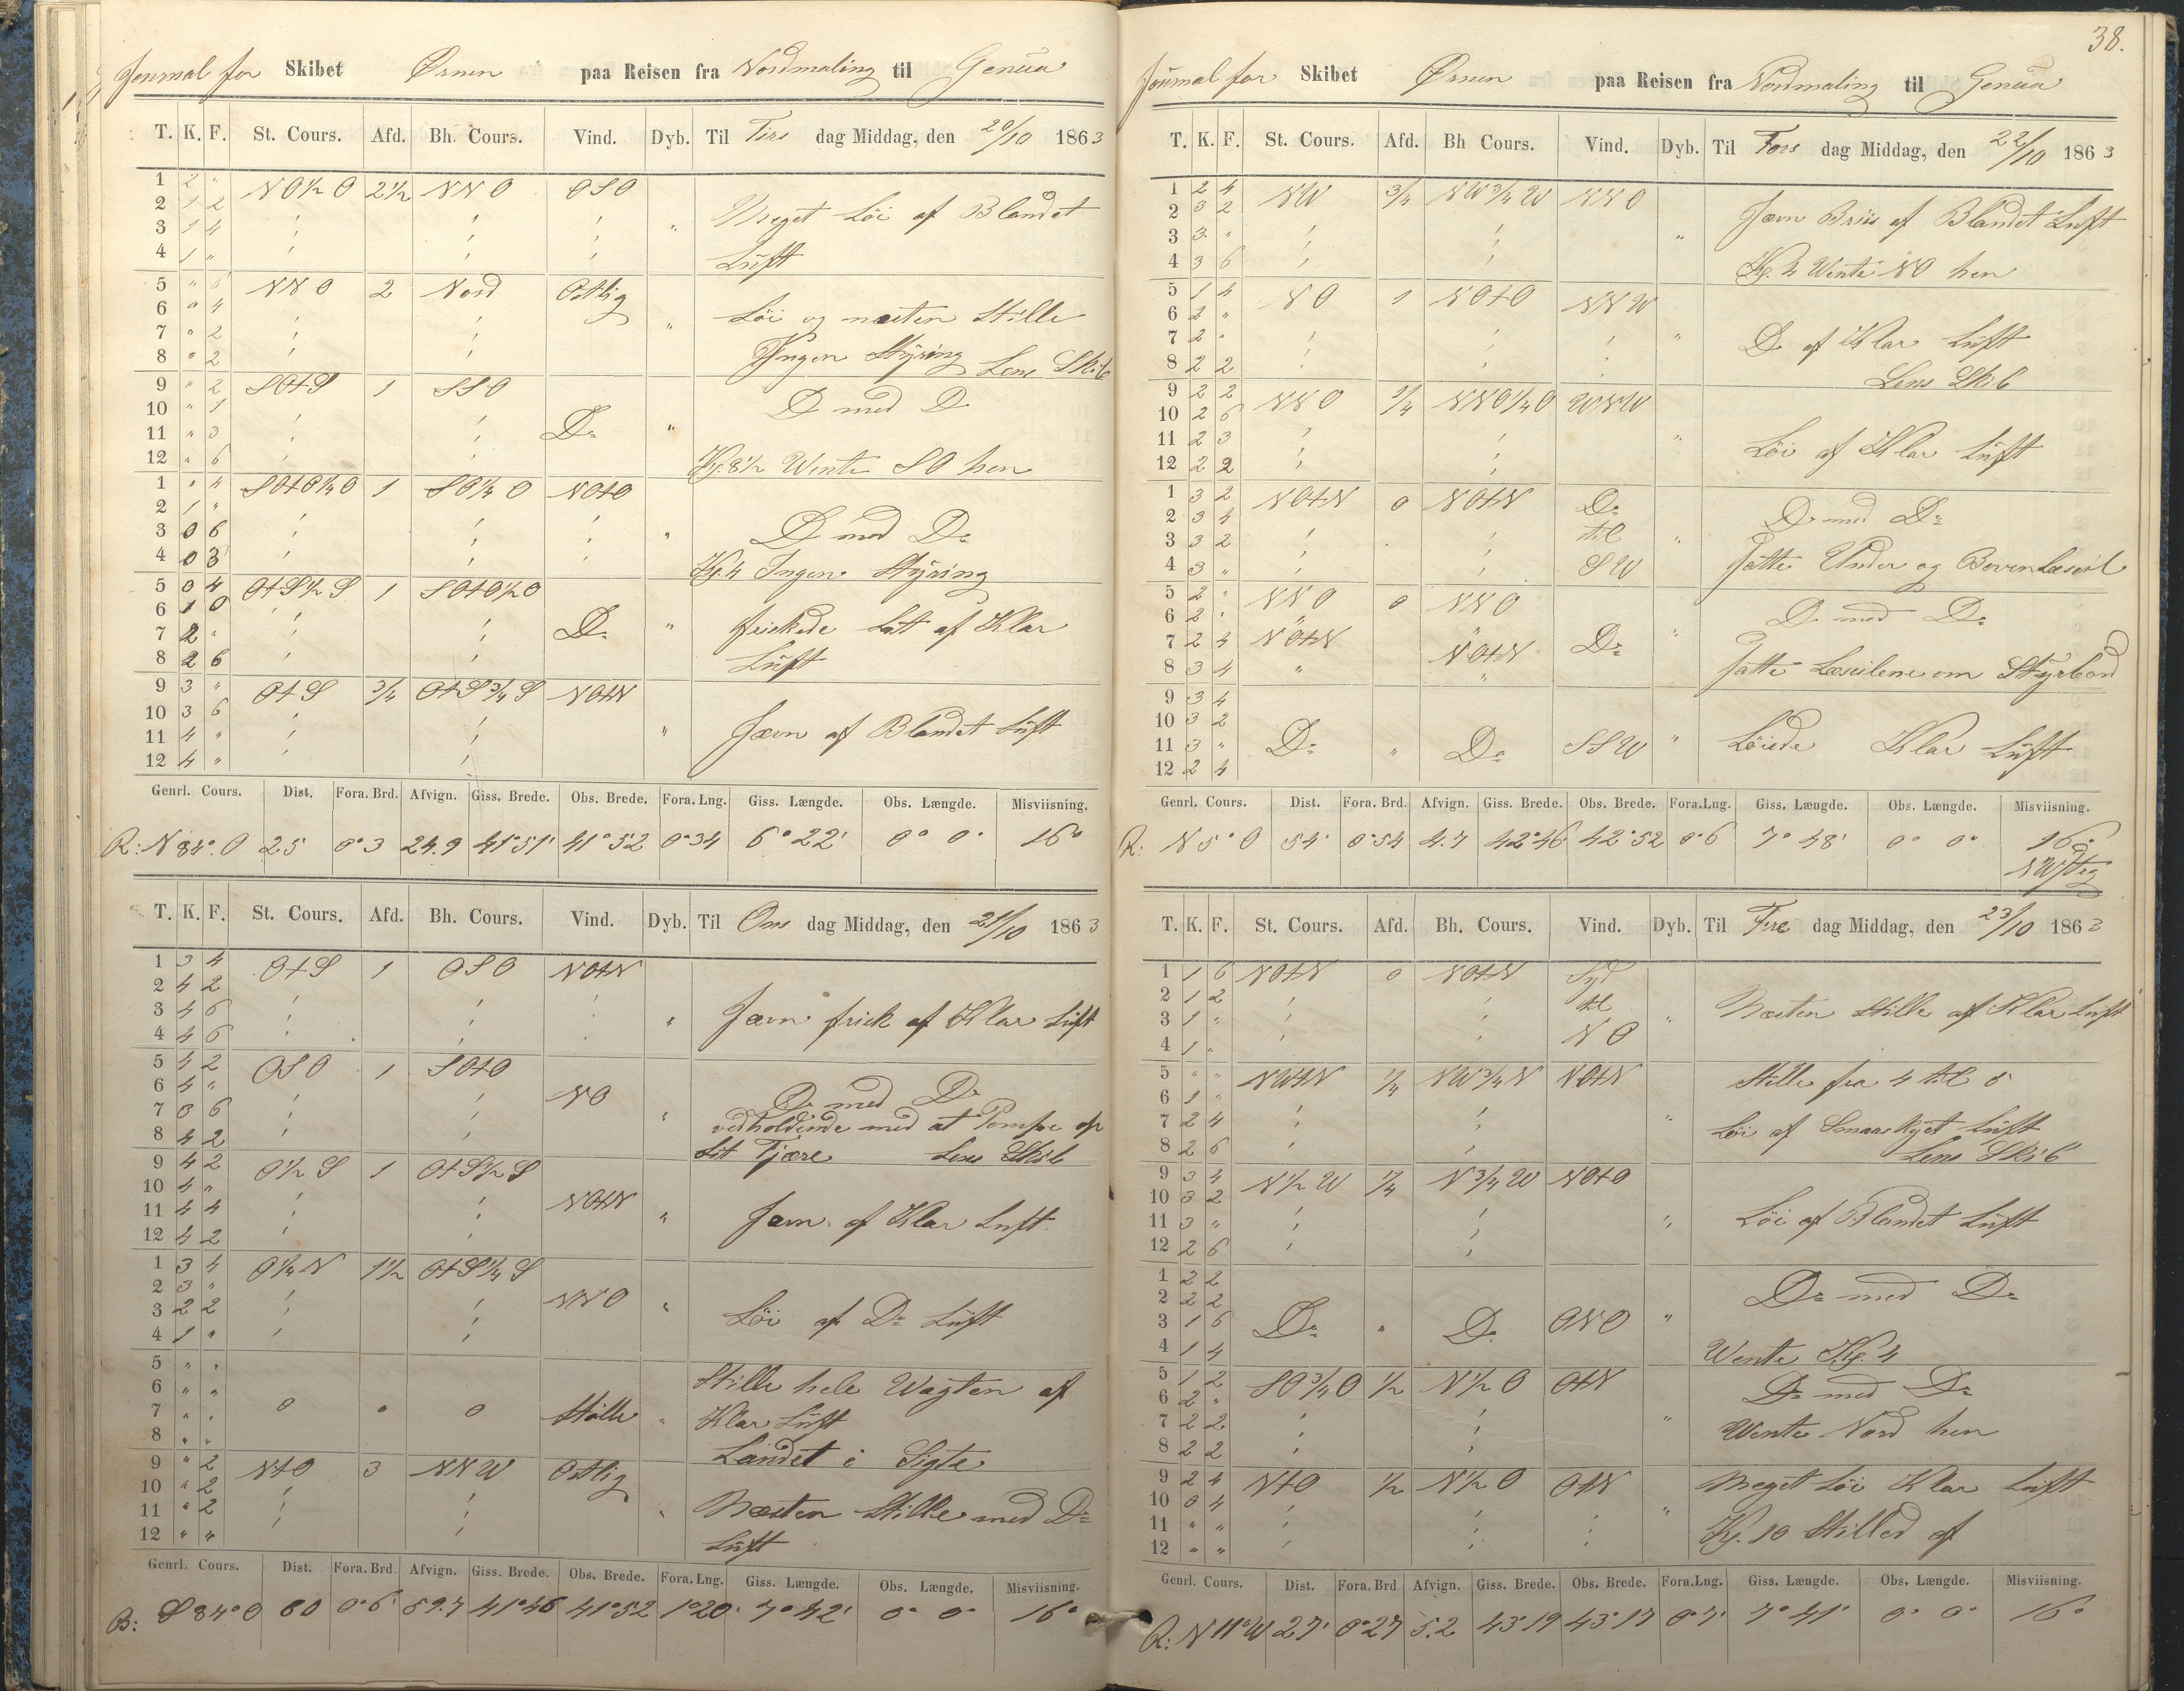 Journal for Skibet Ørnen paa Reisen fra Nordmaling til Genua
T. K. F. St. Cours. Afd. Bh. Cours. Vind. Dyb. Til Tirs dag Middag, den 20/10 1863
1 2 " NO½O 2½ NNO OSO
2 1 2 Meget Löi af Blandet
3 1 4 "
4 1 " Luft
5 " 6 NNO 2 Nord Ostlig
6 " 4 Löi og næsten Stille
7 " 2 "
8 " 2 Ingen Styring Lens Skib
9 " 2 SOtS 1 SSO
10 " 1 Do med Do
11 " 3 Do "
12 " 6 Kl. 8½ Wente SO hen
1 " 4 SOtO¼O 1 SO¼O NOtO
2 1 "
3 0 6 " Do med Do
4 0 3 Kl. 4 Ingen Styring
5 0 4 OtS½S 1 SOtO½O
6 1 0
7 2 " Do " friskede Lit af Klar
8 2 6 Luft
9 3 " OtS ¾ OtS¾S NOtN
10 3 6
11 4 " " Jævn af Blandet Luft
12 4 "
Genrl. Cours. Dist. Fora. Brd. Afvign. Giss. Brede. Obs. Brede. Fora. Lng. Giss. Længde. Obs. Længde. Misviisning.
R: N 84° O 25 0°3 24.9 41°51' 41°52 0°34 6°22' 0° 0' 16°
T. K. F. St. Cours. Afd. Bh. Cours. Vind. Dyb. Til Ons dag Middag, den 21/10 1863
1 3 4 OtS 1 OSO NOtN
2 4 2
3 4 6 " Jævn frisk af Klar Luft
4 4 6
5 4 2 OSO 1 SOtO
6 4 " NO Do med Do
7 3 6 " vedholdende med at Pompe op
8 4 2 Lit Tjære Lens Skib
9 4 2 O½S 1 OtS½S
10 4 "
11 4 4 NOtN " Jævn af Klar Luft
12 4 2
1 3 4 O¼N 1½ OtS¼S
2 3 "
3 2 2 NNO " Löi af Do Luft
4 1 "
5 " " Stille hele Wagten af
6 " "
7 " " 0 0 0 Stille " Klar Luft
8 " " Landet i Sigte
9 " 2 NtO 3 NNW Ostlig
10 " 2
11 " 2 " Næsten Stille med Do
12 " " Luft
Genrl. Cours. Dist. Fora. Brd. Afvign. Giss. Brede. Obs. Brede. Fora. Lng. Giss. Længde. Obs. Længde. Misviisning.
S 84° O 60 0°6' 59.7 41°46 41°52 1°20' 7°42' 0° 0° 16°
38.
Journal for Skibet Ørnen paa Reisen fra Nordmaling til Genua
T. K. F. St. Cours. Afd. Bh Cours. Vind. Dyb. Til Tors dag Middag, den 22/10 1863
1 2 4 NW ¾ NW¾W NNO
2 3 2 Jævn Briis af Blandet Luft
3 3 " "
4 3 6 Kl. 4 Wente NO hen
5 1 4 NO 1 NOtO NNW
6 2 "
7 2 " " Do af Klar Luft
8 2 2 Lens Skib
9 2 2 NNO ¾ NNO¼O WNW
10 2 6
11 2 3 " Löi af Klar Luft
12 2 2
1 3 2 NOtN 0 NOtN Do
2 3 4 til Do med Do
3 3 2 "
4 3 " SW Satte Under og Bovenlæseil
5 2 " NNO 0 NNO
6 2 " " " Do med Do
7 2 4 NOtN NOtN Do "
8 3 4 " " Satte Læseilene om Styrbord
9 3 4
10 3 2
11 3 " Do " Do SSW " Löiede Klar Luft
12 2 4
Genrl. Cours. Dist. Fora. Brd. Afvign. Giss. Brede. Obs. Brede. Fora.Lng. Giss. Længde. Obs. Længde. Misviisning.
R: N 5° O 54' 0°54 4.7 42°46 42°52 0°6 7°48' 0° 0° 16°
T. K. F. St. Cours. Afd. Bh. Cours. Vind. Dyb. Til Fre dag Middag, den 23/10 1863
1 1 6 NOtN 0 NOtN Syd
2 1 2 til
3 1 " " Næsten Stille af Klar Luft
4 1 " NO
5 " " NWtN ¼ NW¾N NOtN Stille fra 4 til 5
6 1 "
7 2 4 " Löi af Smaaskyet Luft
8 2 6 Lens Skib
9 3 4 N½W ¼ N¾W NOtO
10 3 2
11 3 " Löi af Blandet Luft
12 2 6
1 2 2
2 2 2 Do med Do
3 1 6 Do " Do ONO "
4 1 4 Wente Kl. 4
5 1 2 SO¾O ½ N½O OtN
6 2 " Do med Do
7 2 2 " Wente Nord hen
8 2 2
9 2 4 NtO ½ N½O OtN Meget Löi Klar Luft
10 0 4 "
11 " " Kl. 10 Stilled af
12 " "
Genrl. Cours. Dist. Fora. Brd Afvign. Giss. Brede. Obs. Brede. Fora.Lng. Giss. Længde. Obs. Længde. Misviisning.
R: N 11° W 27' 0°27 5.2 43°19 43°17 0°7' 7°41' 0° 0° 16°